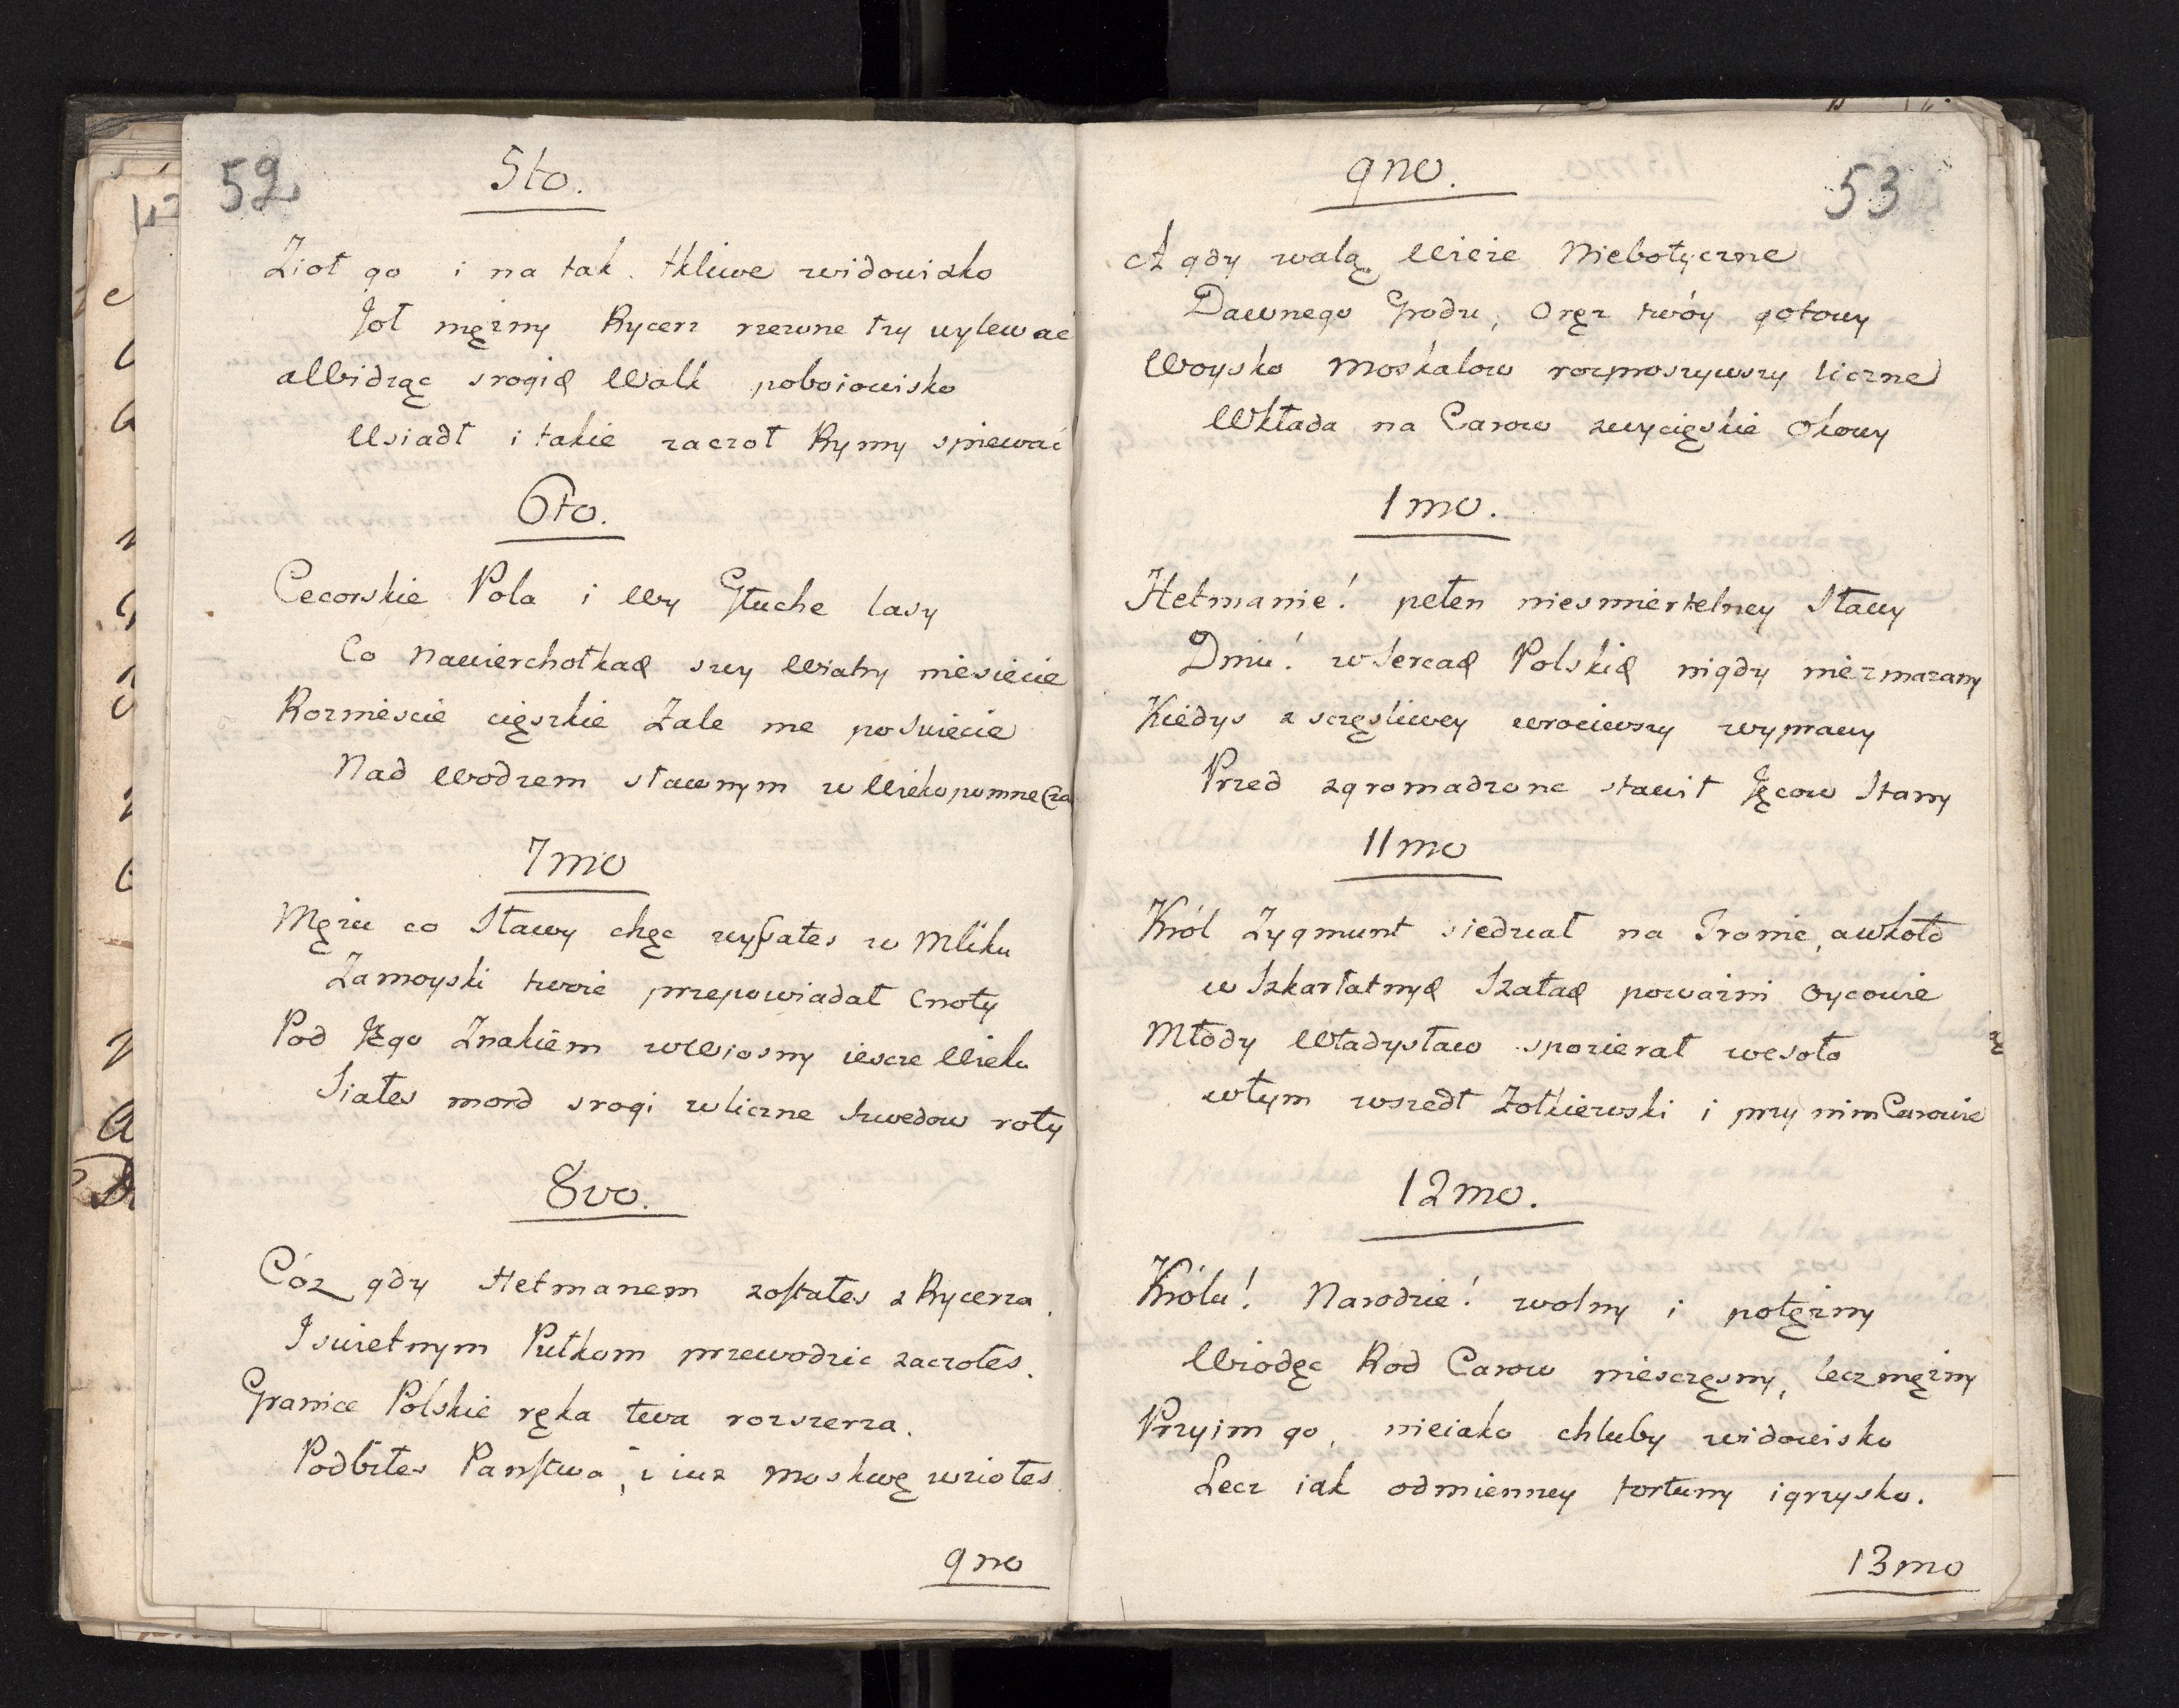 52
5to.
Zioł go i na tak tkliwe widowisko
Joł mężny Rycerz rzewne łzy wylewać
aWidząc srogich Walk poboiowisko
Usiadł i takie zaczoł Rymy spiewać
6to.
Cecorskie Pola i Wy Głuche lasy
Co nawierchołkach swy Wiatry niesiecie
Rozniescie cięszkie Zale me poSwiecie
Nad Wodzem sławnym w Wiekopomne Cza
7mo
Mężu co Sławy chęc wyssałes w Mliku
Zamoyski twoie przepowiadał Cnoty
Pod Jego Znakiem wWiosny iescze Wieku
Siałes mord srogi wliczne Szwedow roty
8vo.
Cóz gdy Hetmanem zostałes z Rycerza.
I swietnym Pułkom przewodzic zaczołes.
Granice Polskie ręka twa rozszerza.
Podbiłes Państwa, i iuz Moskwę wziołes.
9no
53
9no.
A gdy walą Wieże Niebotyczne
Dawnego Grodu, Oręz twóy gotowy
Woysko Moskalow rozproszywszy liczne
Wkłada na Carow zwycięskie Okowy
1mo.
Hetmanie! pełen niesmiertelney Sławy
Dniu! wSercach Polskich nigdy niezmazany
Kiedys z scręsliwey wrociwszy wyprawy
Przed zgromadzone stawił Jęcow Stany
11mo
Król Zygmunt siedział na Tronie, awkoło
w Szkarłatnych Szatach powazni Oycowie
Młody Władysław spozierał wesoło
wtym wszedł Zołkiewski i przy nim Carowie
12mo.
Królu! Narodzie! wolny i potęzny
Wiodęc Rod Carow niescręsny, lecz męzny
Przyim go, nieiako chluby widowisko
Lecz iak odmienney fortuny igrzysko.
13mo